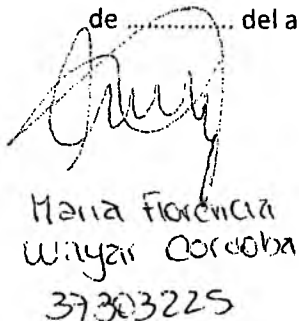 de ................ del a
Maria Florencia
Wilyar Cordoba
37303225